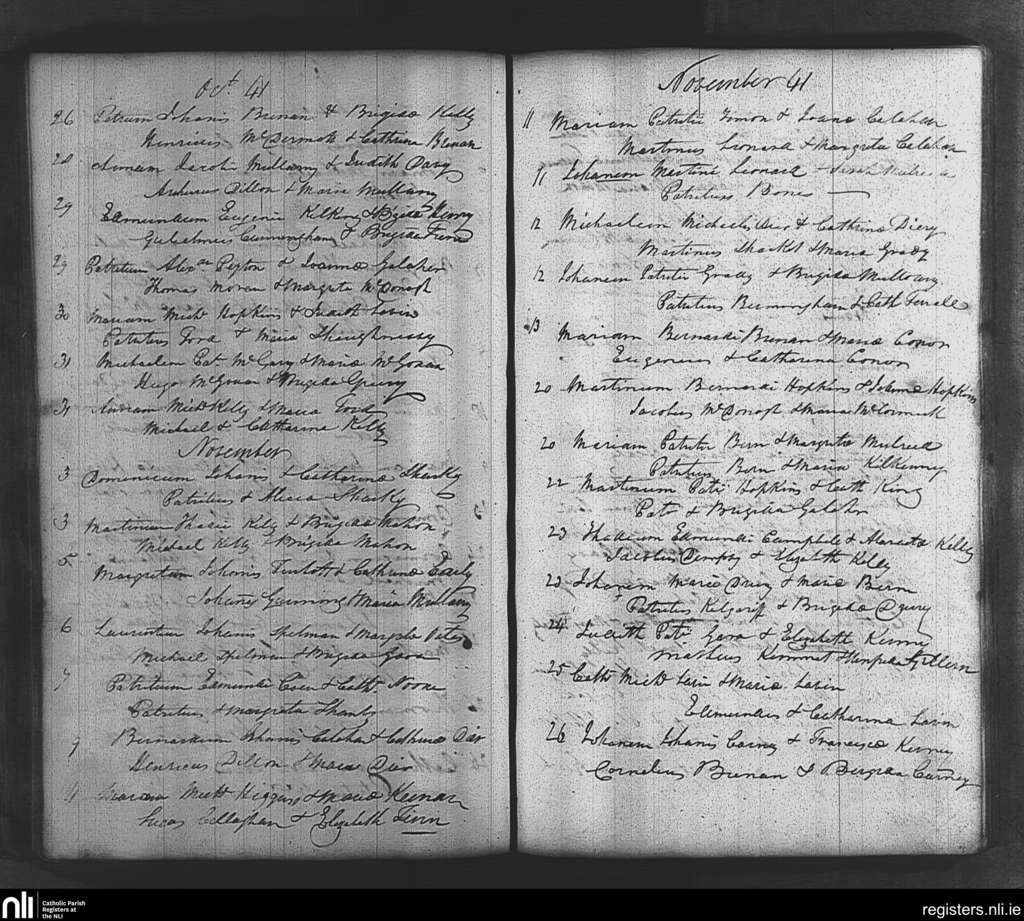 Oct 41
26 Petrum Johanis Brenan & Brigida Kelly
Henricus McDermott & Cathrina Brenan
28 Annam Jacobi Mullany & Judith Davy
Andreas Dillon & Maria Mullany
29 Edmundum Eugenii & Brigida Henry
Gulielmus Cunningham & Brigida
29 Patritium Alexr Peyton & Joanna Galaher
Thomas Moran & Margreta McDonogh
30 Mariam Michl Hopkins & Judith Lavin
Patritius Ford & Maria Shaughnessy
31 Michaelem Pat McGary & Maria McGowan
Hugo McGowan & Brigida
31 Michl Kelly & Maria Ford
Michael & Catharina Kelly
November
3 Domenicum Johanis & Catharina Sharkly
Patritius & Alicia Sharkly
3 Martinum Thadei Kelly & Brigida Mahon
Michael Kelly & Brigida Mahon
5 Margretam Johanis & Cathrina Early
Johanes & Maria Mullany
6 Laurentium Johanis Spelman & Margreta
Michael Spelman & Brigida Gara
7 Patritium Edmundi Coen & Cath Noone
Patritius & Margreta
9 Bernardum Johanis & Cathrina
Henricus Dillon & Maria
11 Mariam Michl Higgins & Maria Keenan
Lucas Callaghan & Elizabeth Finn
November 41
11 Mariam Patritii Timon & Joana Calahan
Martinus Leonard & Margreta Calahan
11 Johanem Martini Leonard &
Patritius Bone
12 Michaelem Michaelis & Cathrina Diery
Martinus & Maria Grady
12 Johanem Patritii Grady & Brigida Mullany
Patritius Bermingham & Cath Ferrell
13 Mariam Bernardi Brenan & Maria Conor
Eugenius & Catharina Conor
20 Martinum Bernardi Hopkins & Johanna Hopkins
Jacobus McDonogh & Maria McCormick
20 Mariam Patritii Bern & Margreta Mulreed
Patritius Bern & Maria Kilkenny
22 Martinum Patt Hopkins & Cath King
Pat & Brigida Galaher
23 Thadeum Edmundi Campbell & Kelly
Jacobus Dempsy & Elizabeth Kelly
23 Johanem & Maria Bern
Patritius Kilgariff & Brigida Drury
24 Judith Patt Gara & Elizabeth
Matheus &
25 Cath Michl Lavin & Maria Lavin
Edmundus & Catharina Lavin
26 Johanem Johanis Carney & Francisca
Cornelius Brenan & Brigida Carney
nli
Catholic Parish
Registers at
the NLI
registers.nli.ie